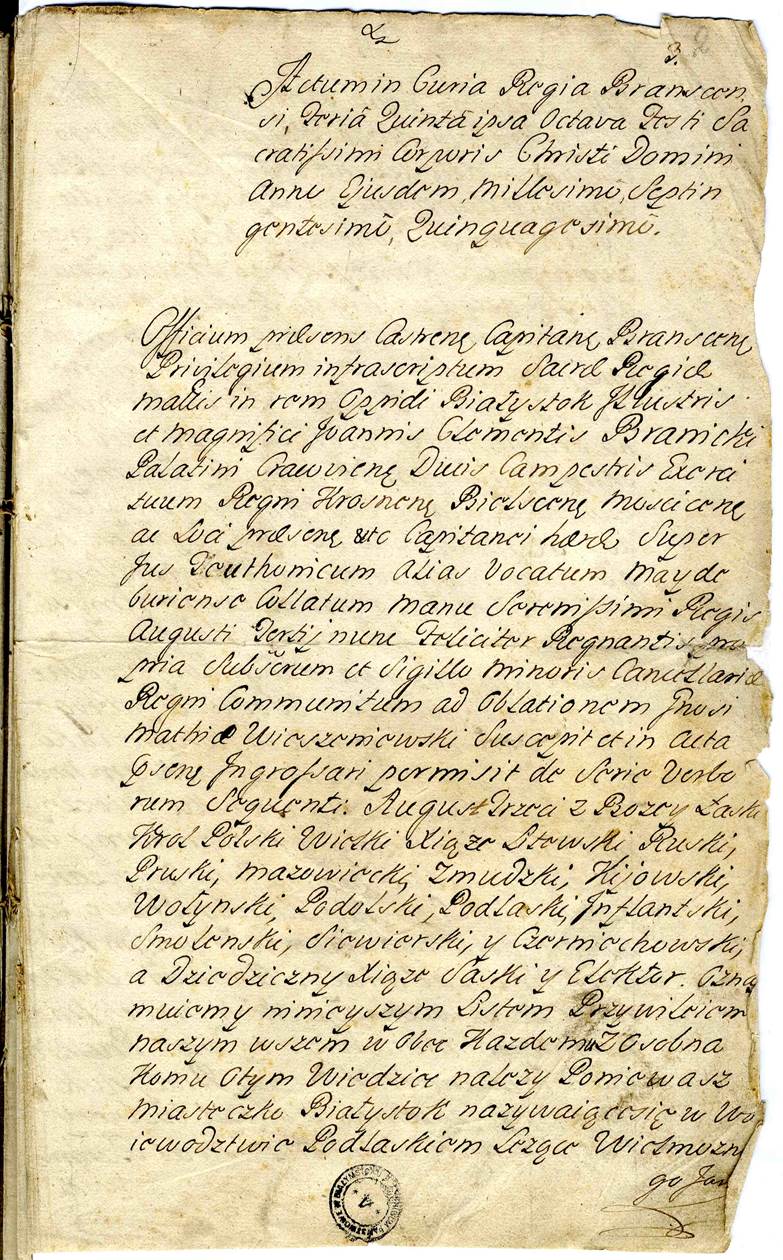 3. 2
Actum in Curia Regia Branscen,
si, Feriâ Quintâ ipsa Octava Festi Sa
cratissimi Corporis Christi Domini
Anno Ejusdem, Millesimô, Septin
gentesimô, Quinquagesimô.
Officium præsens Castrenę Capitanę Branscenę
Privilegium infrascriptum Sacræ Regiæ
Mattis in rem Oppidi Białystok Illustris
et Magnifici Joannis Clementis Branicki
Palatini Cracvienę Ducis Campestris Exerci
tuum Regni Krosnenę Bielscenę Moscicenę
ac Loci præsenę etc Capitanei hæræ Super
Jus Teuthonicum alias vocatum Mayde
buriense Collatum manu Serenissimi Regis
Augusti Tertij nunc Feliciter Regnantis pro
pria Subscrum et Sigillo minoris Cancellariæ
Regni Communitum ad Oblationem Gnosi
Mathiæ Wieszeniewski Suscepit et in Acta
Psenę Ingrossari permisit de Serie Verbo
rum Sequenti: August Trzeci z Bozey Łaski
Krol Polski Wielki Xiąze Litewski Ruski,
Pruski, Mazowiecki, Zmudzki, Kijowski,
Wołynski, Podolski, Podlaski, Inflantski,
Smolenski, Siewierski, y Czerniechowski,
a Dziedziczny Xiąze Saski y Elektor. Ozna
muiemy ninieyszym Listem Przywileiem
naszym wszem w Obec Kazdemu z Osobna
Komu Otym Wiedziec nalezy Poniewasz
Miasteczko Białystok nazywaiącesię w Wo
iewodztwie Podlaskiem Lezące Wielmozne
go Jan